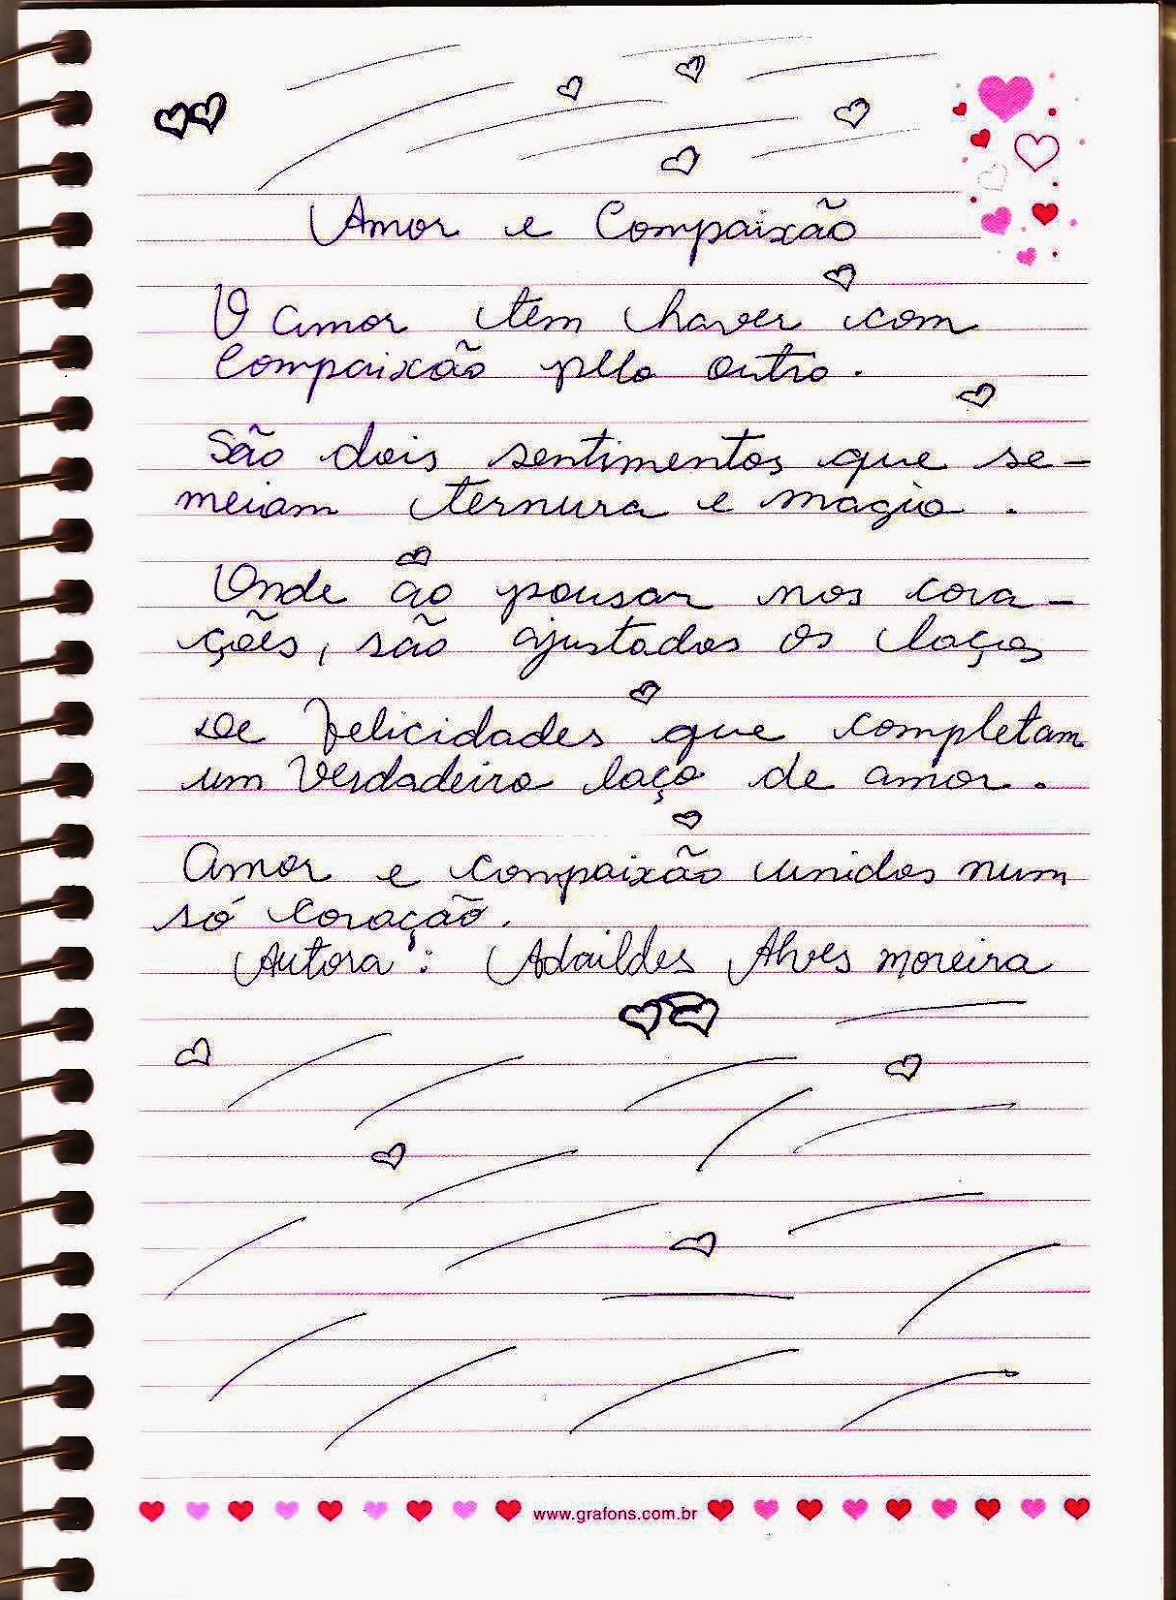 Amor e Compaixão
O amor tem haver com
Compaixão pelo outro.
São dois sentimentos que se-
meiam ternura e magia.
Onde ao pousar nos cora-
ções, são ajustados os laços
De felicidades que completam
um Verdadeiro laço de amor.
Amor e compaixão unidos num
só coração.
Autora: Adaildes Alves moreira
www.grafons.com.br